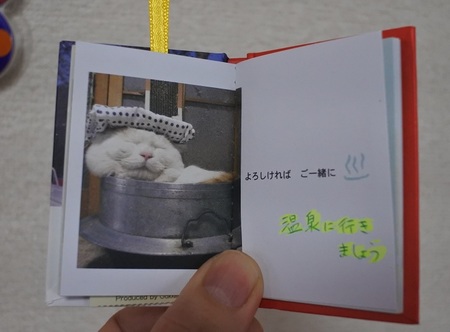 よろしければ ご一緒に
温泉に行き
ましょう
Produced by